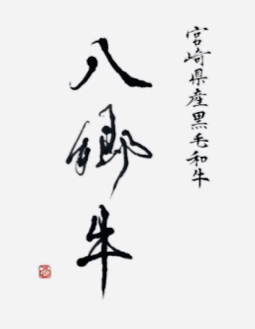 宮崎県産黒毛和牛
八郷牛